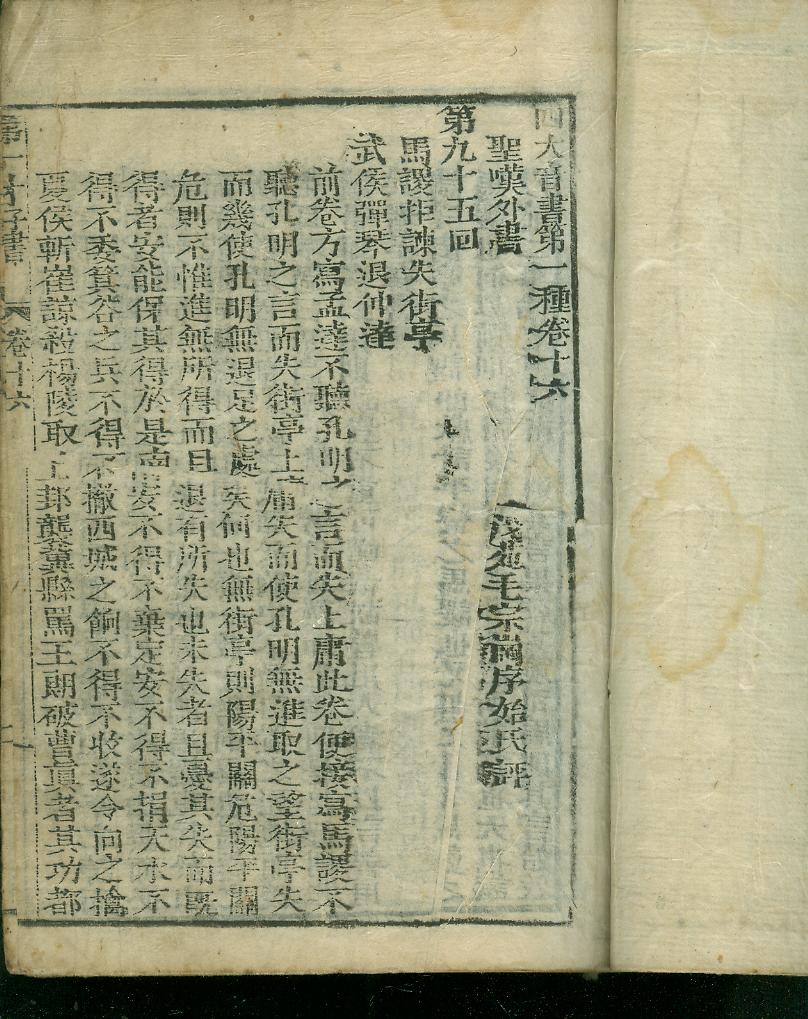 四大奇書第一種卷十六
聖嘆外書
茂苑毛宗崗序始氏評
第九十五回
馬謖拒諫失街亭
武侯彈琴退仲達
前卷方寫孟達不聽孔明之言而失上庸此卷便接寫馬謖不
聽孔明之言而失街亭上庸失而使孔明無進取之望街亭失
而幾使孔明無退足之處矣何也無街亭則陽平關危陽平關
危則不惟進無所得而且退有所失也未失者且憂其失而既
得者安能保其得於是南安不得不棄定安不得不捐天水不
得不委箕谷之兵不得不撤西城之餉不得不收遂令向之擒
夏侯斬崔諒殺楊陵取上邽襲冀縣罵王朗破曹真者其功都
第一才子書
卷十六